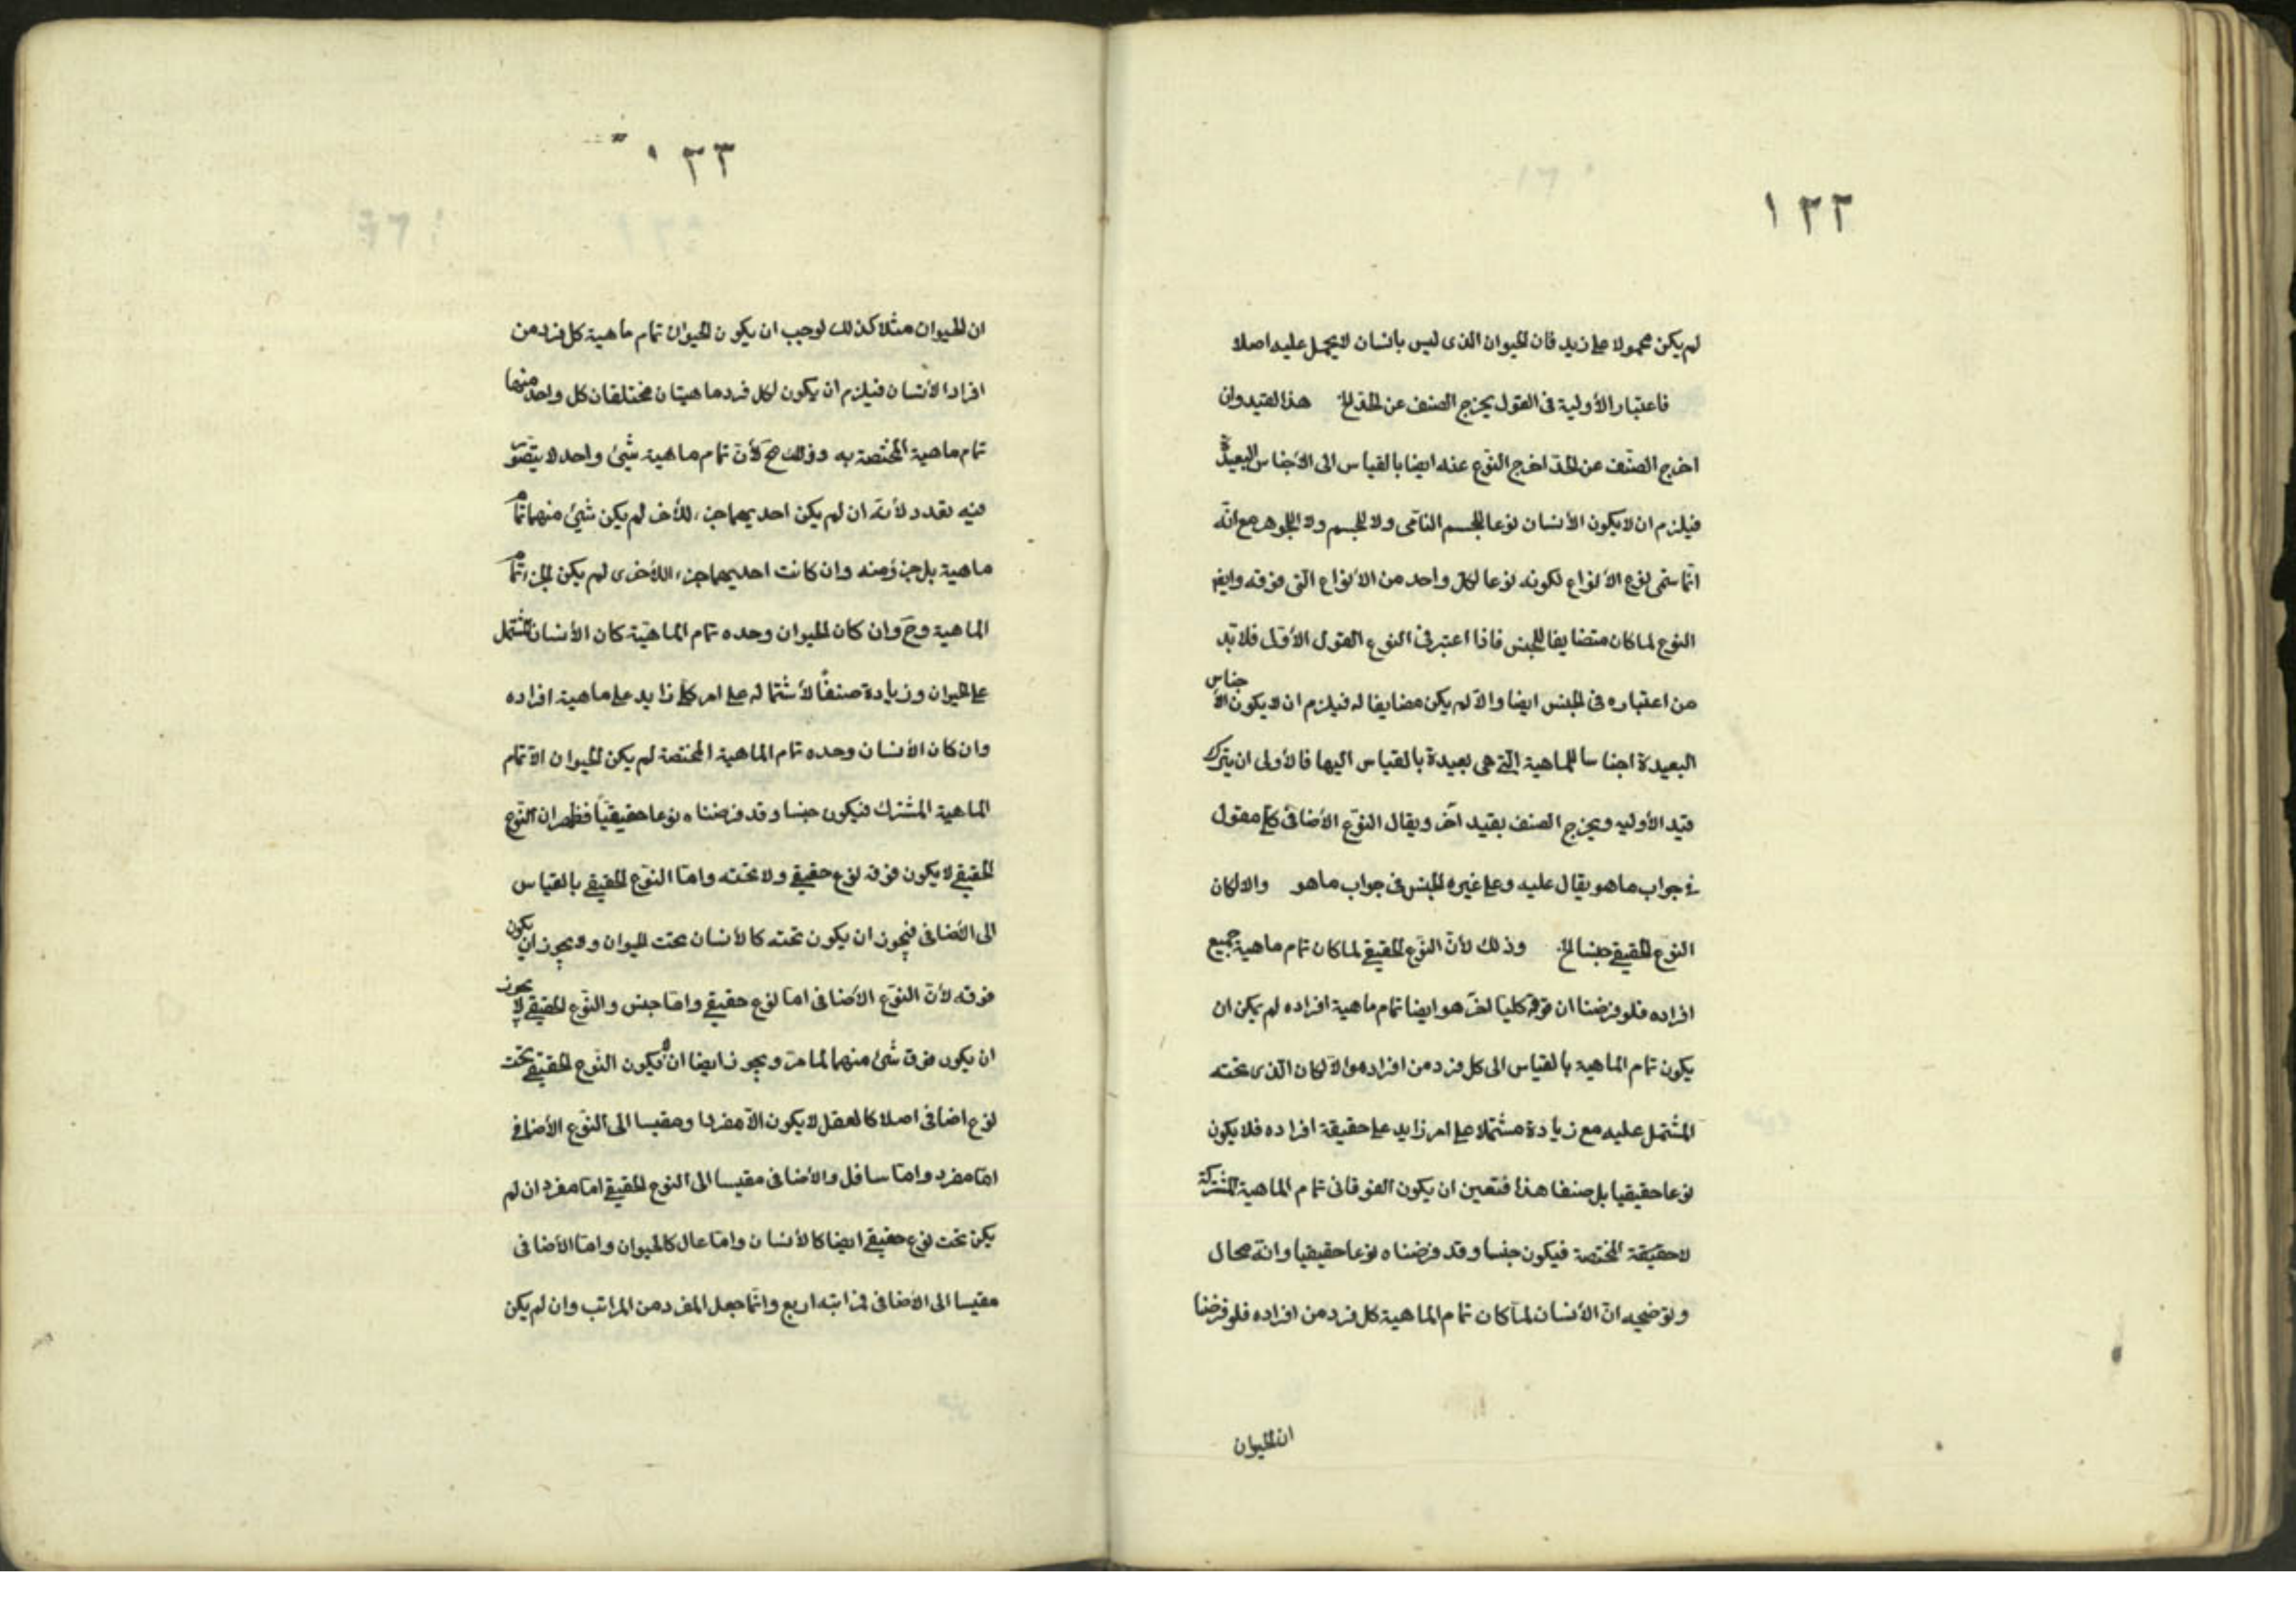 ١٢٢
لم يكن محمولا على زيد فان الحيوان الذى ليس بانسان لا يحمل عليه اصلا
فاعتبار الأولية فى القول يخرج الصنف عن الحد الخ هذا القيد وان
اخرج الصنّف عن الحدّ اخرج النوّع عنه ايضا بالقياس الى الأجناس البعيدة
فيلزم ان لا يكون الأنسان نوعا للجسم النّامى ولا للجسم ولا للجوهر مع انّه
انّما سمّى نوع الأنواع لكونه نوعا لكلّ واحد من الأنواع الّتى فوقه وايضا
النوع لما كان متضايفا للجنس فاذا اعتبر فى النوع القول الأوّل فلا بّد
من اعتباره فى الجنس ايضا والاّ لم يكن مضايفا له فيلزم ان لا يكون الأجناس
البعيدة اجناسا للماهية الّتى هى بعيدة بالقياس اليها فالأولى ان يترك
قيد الأوليه ويخرج الصنف بقيد آخر ويقال النوّع الأضافى كلّى مقول
فى جواب ما هو يقال عليه وعلى غيره الجنس فى جواب ما هو والا لكان
النوّع الحقيقى جنسا الخ وذلك لأنّ النوّع الحقيقى لما كان تمام ماهية جميع
افراده فلو فرضنا ان فوقه كليّا آخر هو ايضا تمام ماهية افراده لم يكن ان
يكون تمام الماهية بالقياس الى كل فرد من افراده والاّ لكان الّذى تحته
المشتمل عليه مع زيادة مشتملا على امر زايد على حقيقة افراده فلا يكون
نوعا حقيقيا بل صنفا هذا فتعين ان يكون الفوقانى تمام الماهية المشتركة
لا حقيقة المختصة فيكون جنسا وقد فرضناه نوعا حقيقيا وانّه محال
وتوضيحه انّ الأنسان لمّا كان تمام الماهية كل فرد من افراده فلو فرضنا
ان الحيوان
١٢٣
ان الحيوان مثلا كذلك لوجب ان يكون الحيوان تمام ماهية كل فرد من
افراد الأنسان فيلزم ان يكون لكل فرد ماهيتان مختلفان كل واحد منهما
تمام ماهية المختصة به وذلك مح لأنّ تمام ماهية شئ واحد لا يتصّور
فيه تعدد لأنّه ان لم يكن احديهما جزء للأخر لم يكن شئ منهما تمام
ماهية بل جزؤ منه وان كانت احديهما جزء اللأخرى لم يكن الجزء تمام
الماهية وحَ وان كان الحيوان وحده تمام الماهيّة كان الأنسان المشتمل
على الحيوان وزيادة صنفًا لأشتماله على امر كلّى زايد على ماهية افراده
وان كان الأنسان وحده تمام الماهية المختصة لم يكن الحيوان الاّ تمام
الماهية المشترك فيكون جنسا وقد فرضناه نوعا حقيقيّا فظهر ان النّوع
الحقيقى لا يكون فوقه نوع حقيقى ولا تحته وامّا النوّع الحقيقى بالقياس
الى الأضافى فيجوز ان يكون تحته كالأنسان تحت الحيوان ولا يجوز ان يكون
فوقه لأنّ النوّع الأضافى امّا نوع حقيقى وامّا جنس والنّوع الحقيقى لا يجوز
ان يكون فوق شئ منهما لما مرّ ويجوز ايضا ان لا يكون النّوع الحقيقى تحت
نوع اضافى اصلا كالعقل لا يكون الاّ مفردا ومقيسا الى النّوع الأضافى
امّا مفرد وامّا سافل والأضافى مقيسا الى النوع الحقيقى امّا مفرد ان لم
يكن تحت نوع حقيقى ايضا كالأنسان وامّا عال كالحيوان وامّا الأضافى
مقيسا الى الأضافى فمراتبه اربع وانّما جعل المفرد من المراتب وان لم يكن